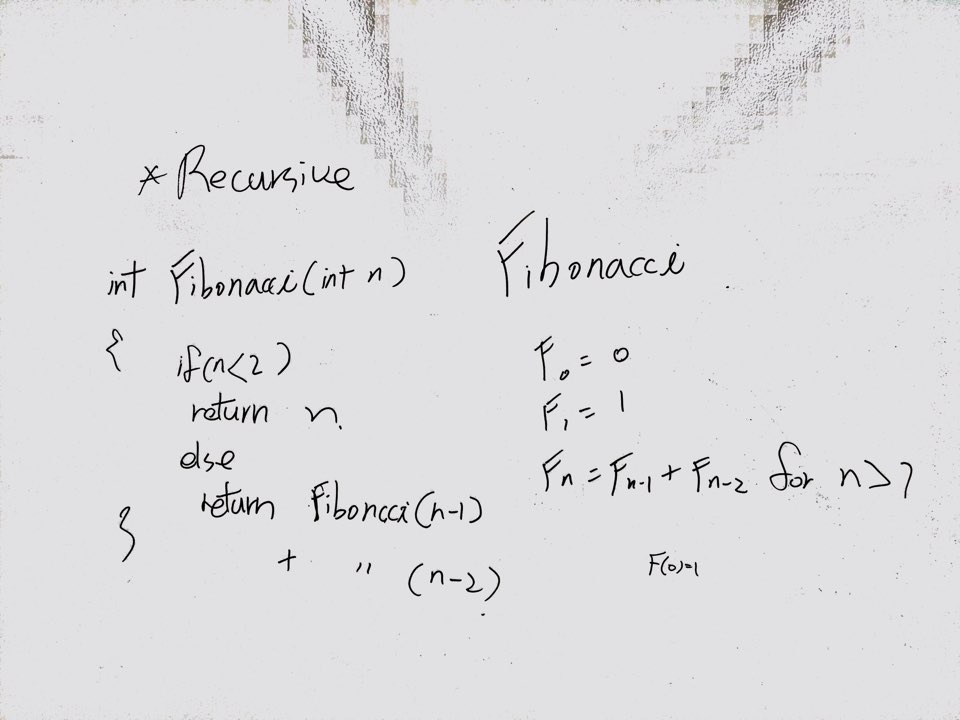 * Recursive
int Fibonacci(int n)
{
if(n<2)
return n.
else
return Fiboncci(n-1)
+ " (n-2)
}
Fibonacci
F₀ = 0
F₁ = 1
Fn = Fn-1 + Fn-2 for n >
F(0)=1